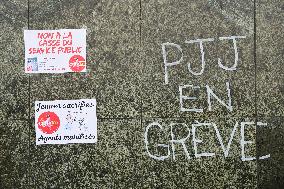 NON À LA
CASSE DU
SERVICE PUBLIC
Jeunes sacrifiés
Agents maltraités
PJJ
en
GREVE